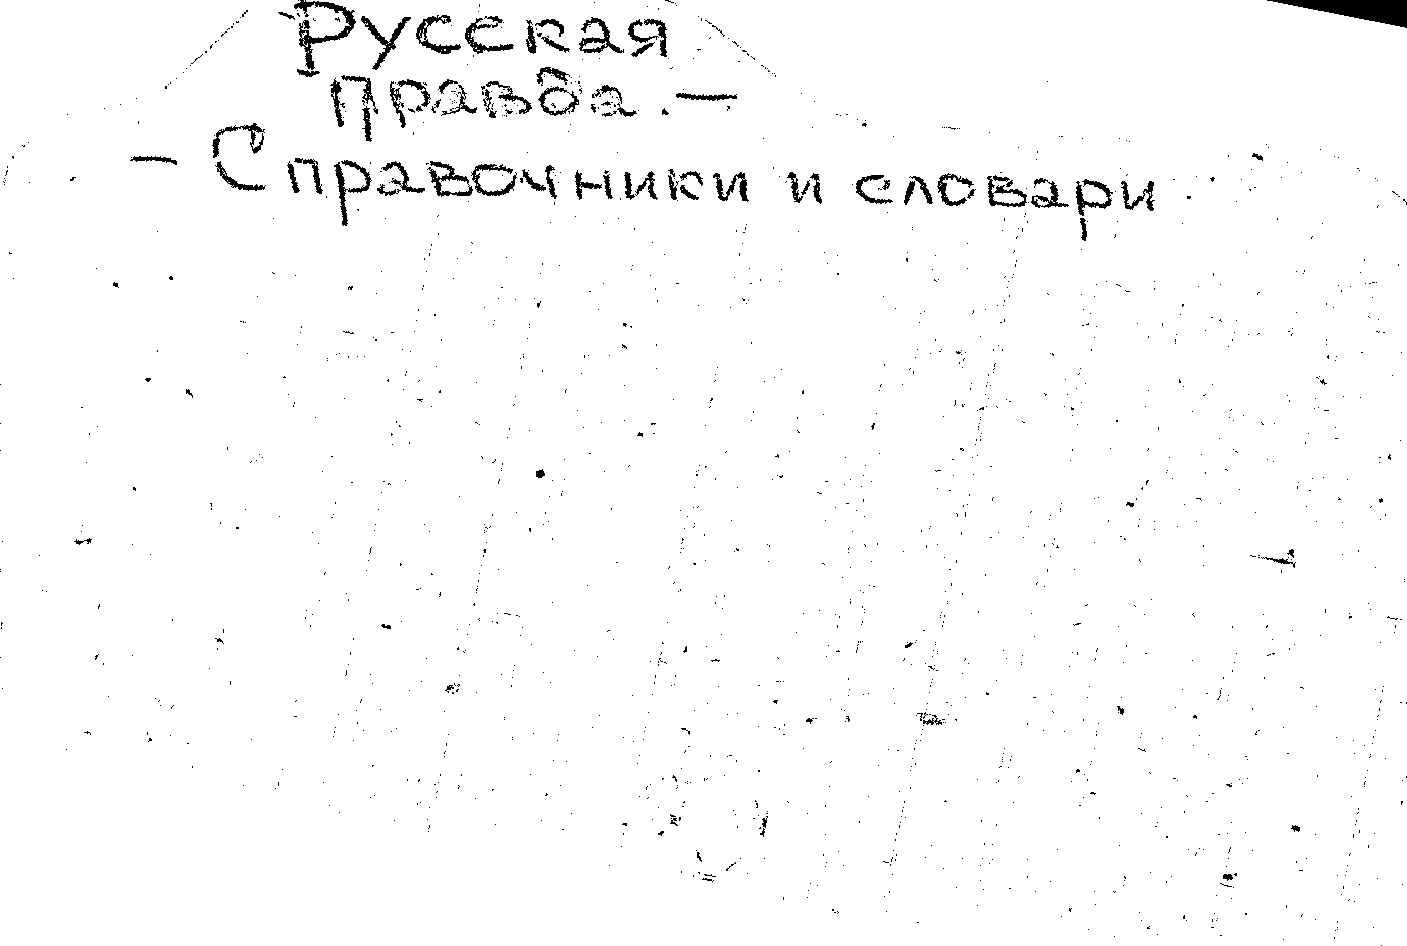 Русская
правда. —
— Справочники и словари